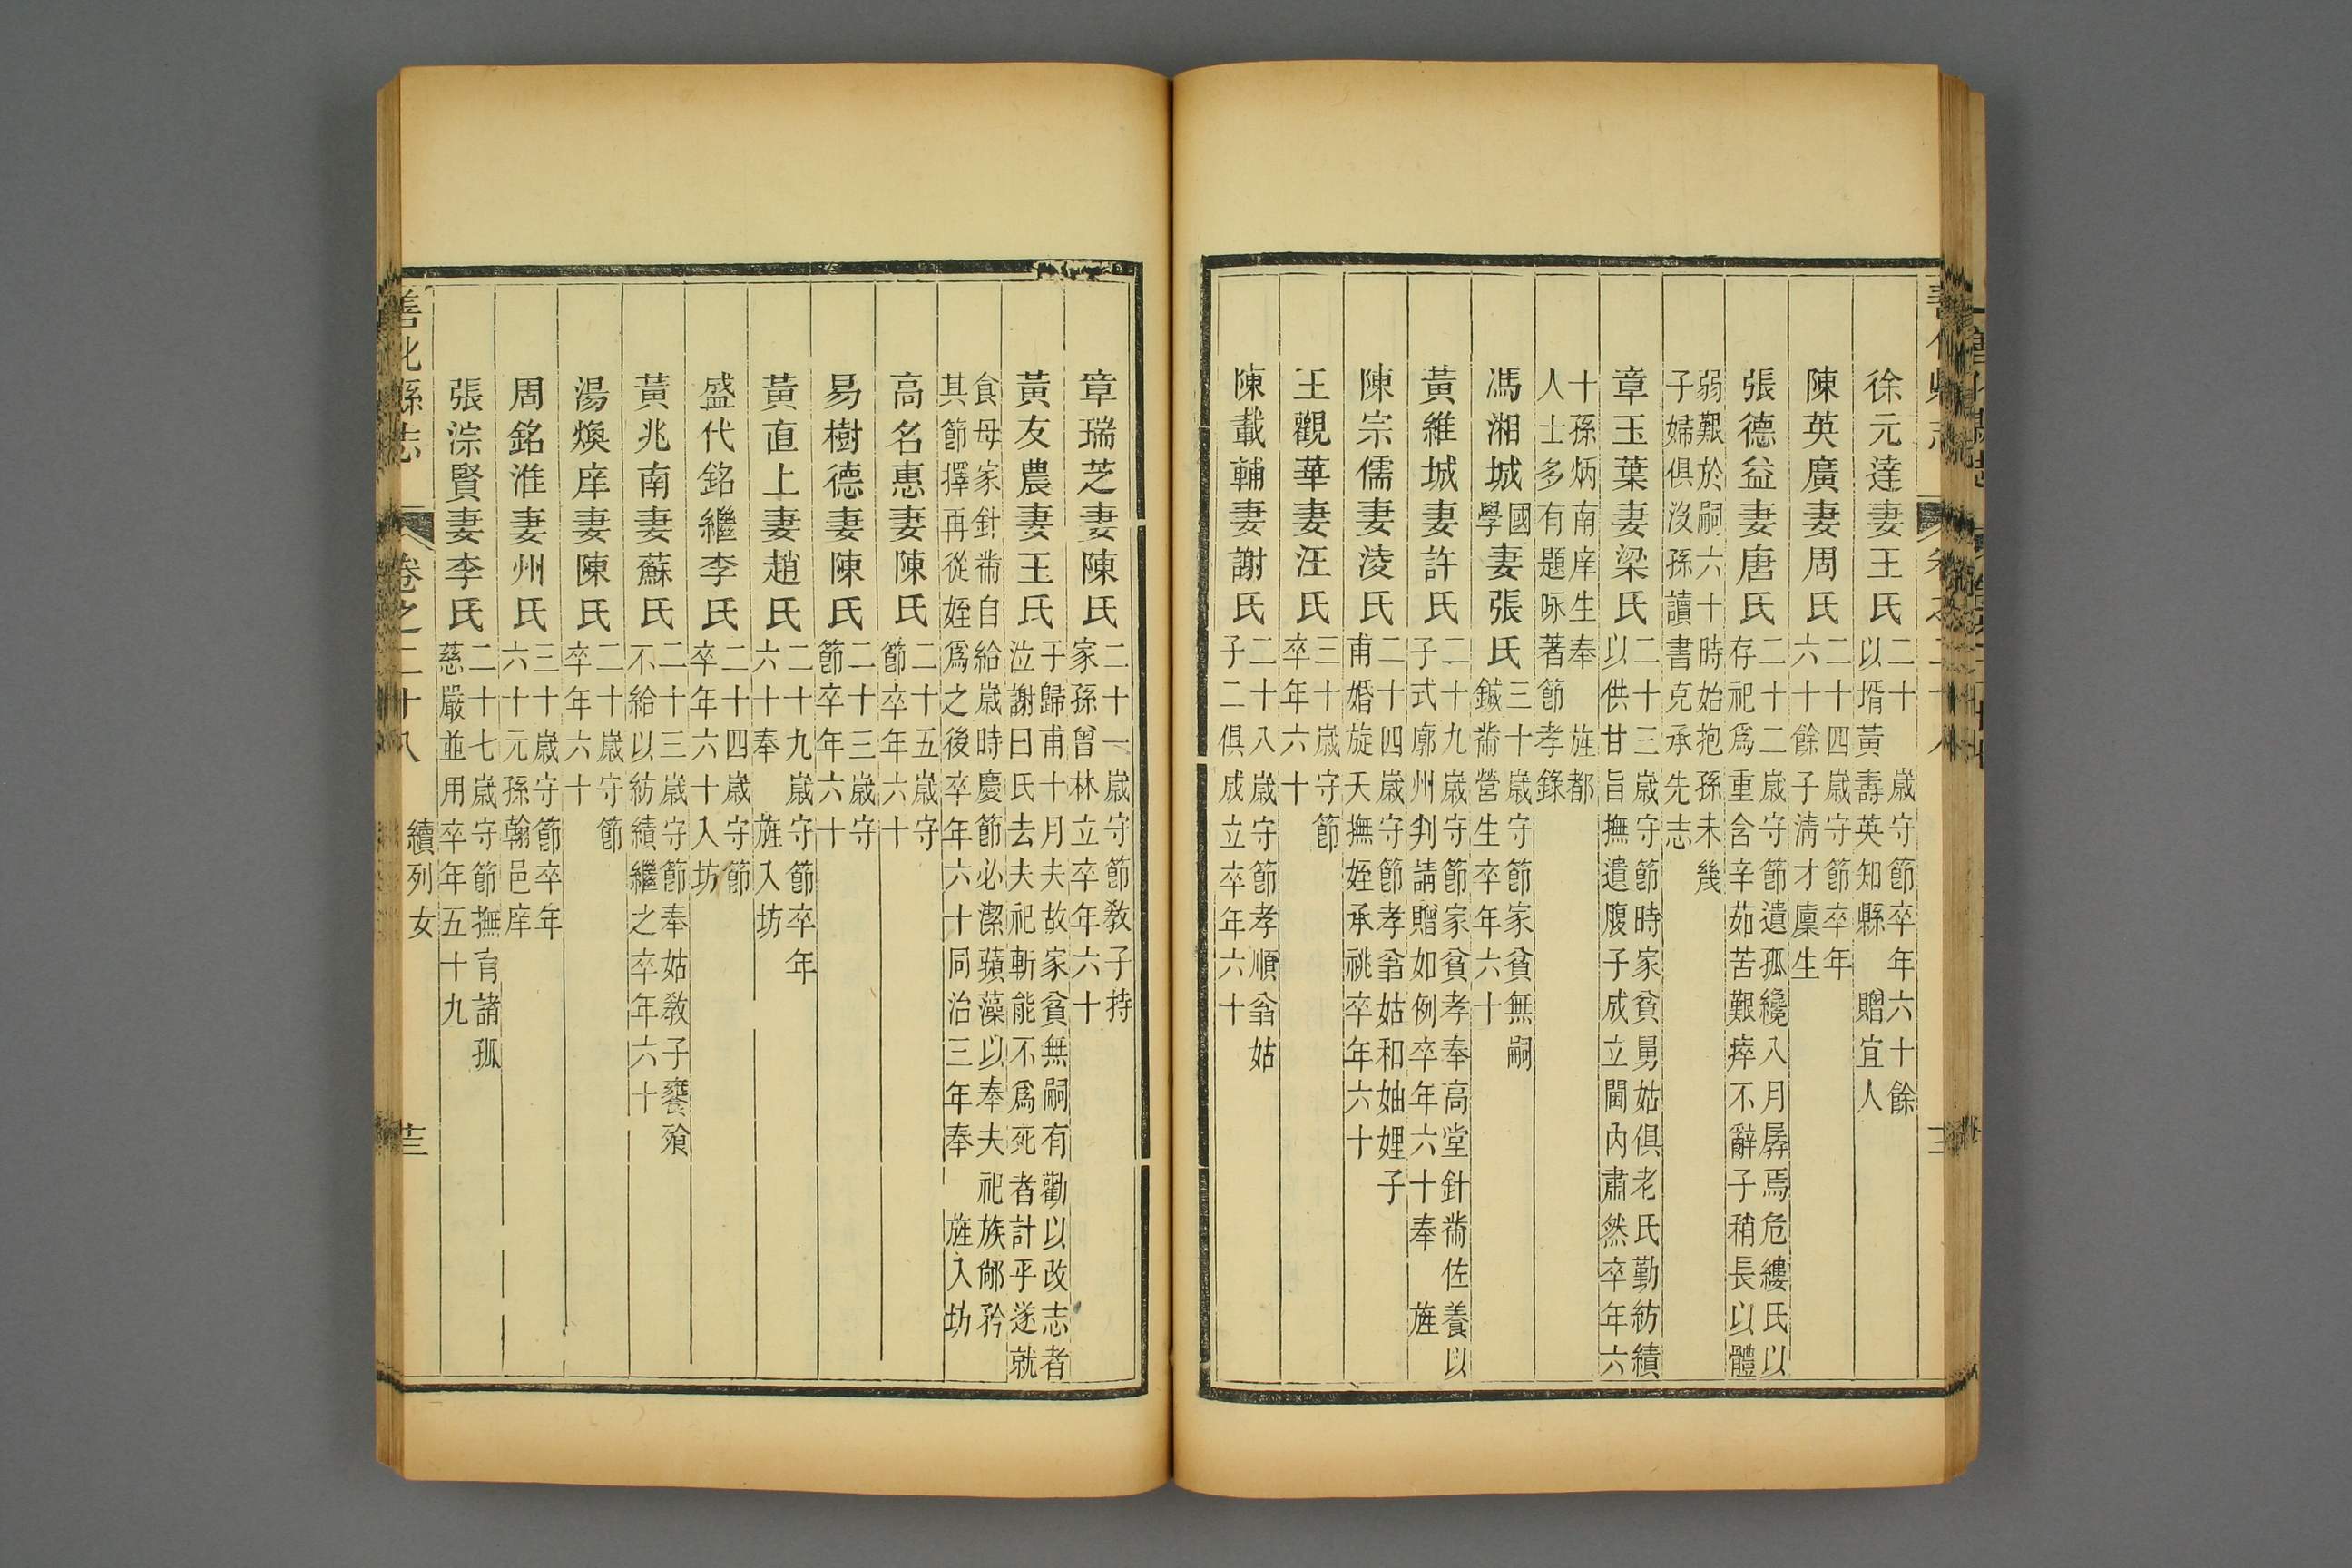 徐元達妻王氏二十 歲守節卒年六十餘
以壻黃壽英知縣 贈宜人
陳英廣妻周氏二十四歲守節卒年
六十餘子淸才廩生
張德益妻唐氏二十二歲守節遺孤纔八月孱焉危縷氏以
存祀爲重含辛茹苦艱瘁不辭子稍長以體
弱艱於嗣六十時始抱孫未幾
子婦俱沒孫讀書克承先志
章玉葉妻梁氏二十三歲守節時家貧舅姑俱老氏勤紡績
以供甘旨撫遺腹子成立閫內肅然卒年六
十孫炳南庠生奉 旌都
人士多有題咏著節孝錄
馮湘城國學妻張氏三十歲守節家貧無嗣
鍼黹營生卒年六十
黃維城妻許氏二十九歲守節家貧孝奉高堂針黹佐養以
子式廓州判請贈如例卒年六十奉 旌
陳宗儒妻淩氏二十四歲守節孝翁姑和妯娌子
甫婚旋夭撫姪承祧卒年六十
王觀華妻汪氏三十歲守節
卒年六十
陳載輔妻謝氏二十八歲守節孝順翁姑
子二俱成立卒年六十
章瑞芝妻陳氏二十一歲守節教子持
家孫曾林立卒年六十
黃友農妻王氏于歸甫十月夫故家貧無嗣有勸以改志者
泣謝曰氏去夫祀斬能不爲死者計乎遂就
食母家針黹自給歲時慶節必潔蘋藻以奉夫祀族鄰矜
其節擇再從姪爲之後卒年六十同治三年奉 旌入坊
高名惠妻陳氏二十五歲守
節卒年六十
易樹德妻陳氏二十三歲守
節卒年六十
黃直上妻趙氏二十九歲守節卒年
六十奉 旌入坊
盛代銘繼李氏二十四歲守節
卒年六十入坊
黃兆南妻蘇氏二十三歲守節奉姑教子饔飧
不給以紡績繼之卒年六十
湯煥庠妻陳氏二十歲守節
卒年六十
周銘淮妻州氏三十歲守節卒年
六十元孫翰邑庠
張淙賢妻李氏二十七歲守節撫育諸孤
慈嚴並用卒年五十九
善化縣志 卷之二十八 續列女